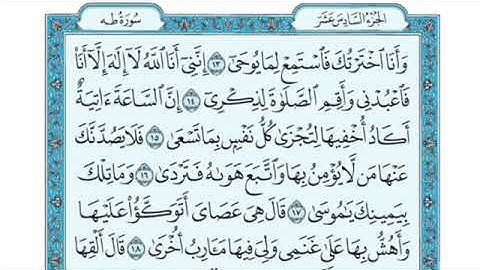 سورة طه
الجزء السادس عشر
وَأَنَا ٱخۡتَرۡتُكَ فَٱسۡتَمِعۡ لِمَا يُوحَىٰٓ ١٣ إِنَّنِيٓ أَنَا ٱللَّهُ لَآ إِلَٰهَ إِلَّآ أَنَا۠
فَٱعۡبُدۡنِي وَأَقِمِ ٱلصَّلَوٰةَ لِذِكۡرِيٓ ١٤ إِنَّ ٱلسَّاعَةَ ءَاتِيَةٌ
أَكَادُ أُخۡفِيهَا لِتُجۡزَىٰ كُلُّ نَفۡسِۭ بِمَا تَسۡعَىٰ ١٥ فَلَا يَصُدَّنَّكَ
عَنۡهَا مَن لَّا يُؤۡمِنُ بِهَا وَٱتَّبَعَ هَوَىٰهُ فَتَرۡدَىٰ ١٦ وَمَا تِلۡكَ
بِيَمِينِكَ يَٰمُوسَىٰ ١٧ قَالَ هِيَ عَصَايَ أَتَوَكَّؤُاْ عَلَيۡهَا
وَأَهُشُّ بِهَا عَلَىٰ غَنَمِي وَلِيَ فِيهَا مَـَٔارِبُ أُخۡرَىٰ ١٨ قَالَ أَلۡقِهَا